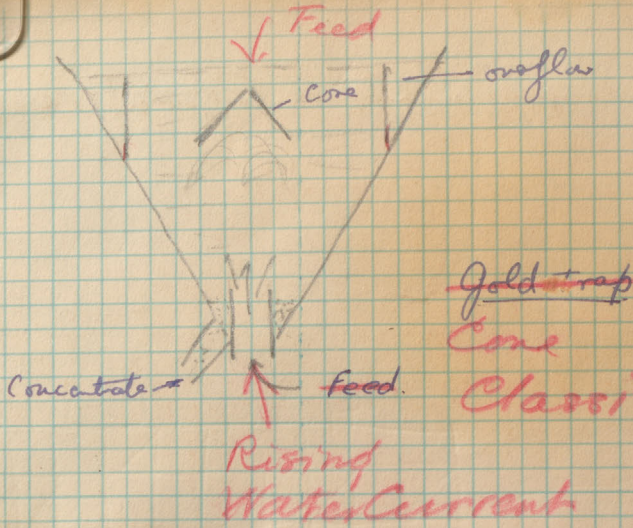 Feed
Cone
overflow
Gold trap
Cone
Classi
Concentrate
Feed.
Rising
Water Current